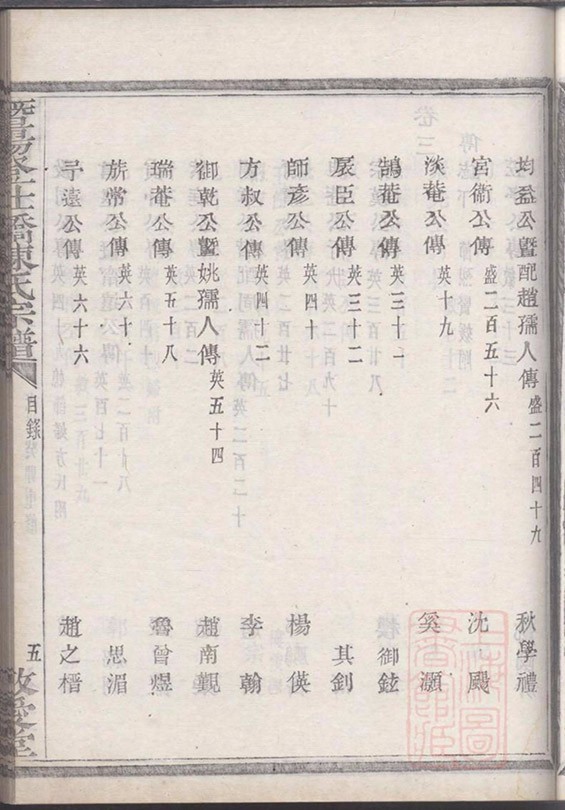 均益公暨配趙孺人傳 盛二百四十九 秋學禮
宮衛公傳 盛二百五十六 沈 颺
淡菴公傳 英十九 奚 灝
鵠菴公傳 英三十一 樓御鉉
展臣公傳 英三十二 其釗
師彥公傳 英四十 楊 偀
方叔公傳 英四十二 李 翰
御乾公暨姚孺人傳 英五十四 趙南觀
瑞菴公傳 英五十八 魯曾煜
旂常公傳 英六十 思湄
子遠公傳 英六十六 趙之橿
宅仕橋陳氏宗譜 目錄 五 敬愛堂